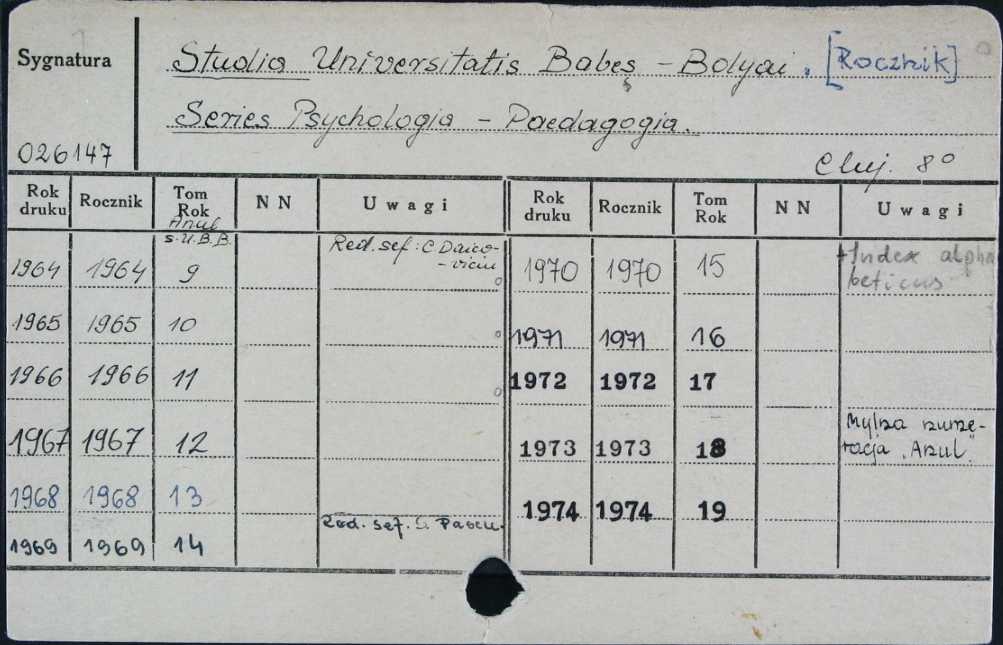 Sygnatura
Studia Universitatis Babeş - Bolyai. [Rocznik]
Series Psychologia - Paedagogia.
026147
Cluj. 8°
Rok druku Rocznik Tom Rok NN Uwagi Rok druku Rocznik Tom Rok NN Uwagi
Anul
s.U.B.B.
1964 1964 9 Red. şef: C Daico-
-viciu
1970 1970 15 +Index alpha
beticus
1965 1965 10
1971 1971 16
1966 1966 11
1972 1972 17
1967 1967 12
1973 1973 18 Mylna nume-
racja "Anul"
1968 1968 13
1974 1974 19
Red. şef. Ş. Pascu.
1969 1969 14